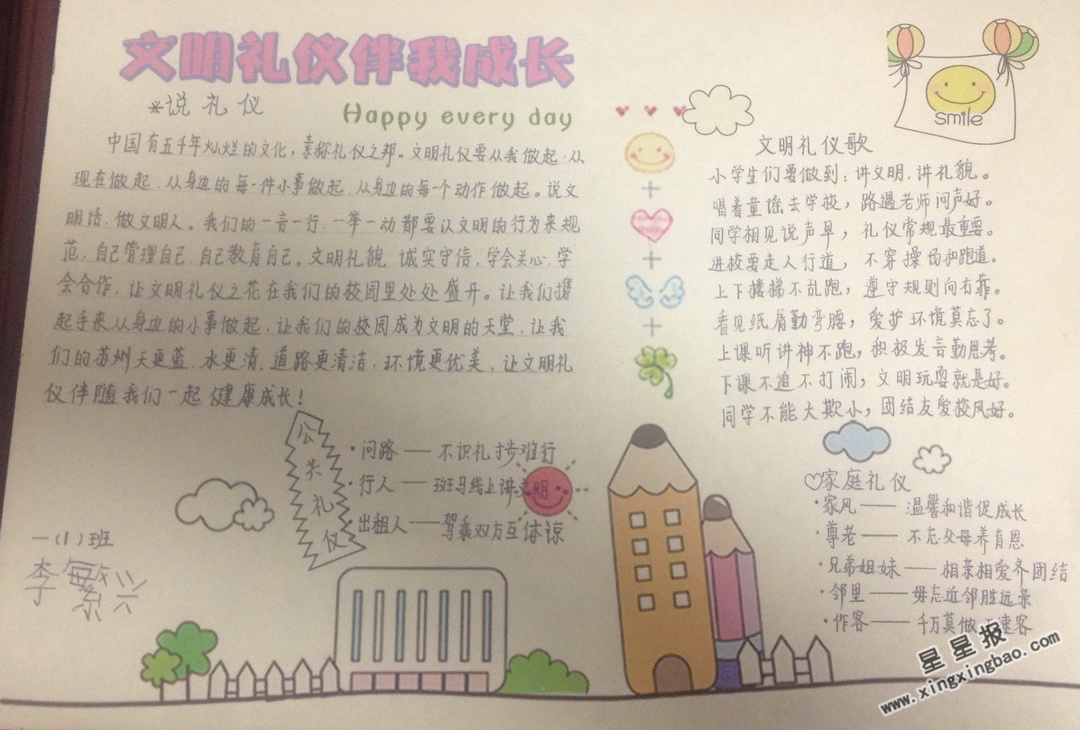 文明礼仪伴我成长
Happy every day
*说礼仪
中国有五千年灿烂的文化,素称礼仪之邦。文明礼仪要从我做起.从
现在做起,从身边的每一件小事做起,从身边的每个动作做起。说文
明话,做文明人。我们的一言一行,一举一动都要以文明的行为来规
范,自己管理自己,自己教育自己。文明礼貌,诚实守信,学会关心,学
会合作,让文明礼仪之花在我们的校园里处处盛开。让我们携
起手来从身边的小事做起,让我们的校园成为文明的天堂,让我
们的苏州天更蓝,水更清,道路更清洁,环境更优美,让文明礼
仪伴随我们一起健康成长!
公共礼仪
·问路——不识礼寸步难行
·行人——斑马线上讲文明
·出租人——驾乘双方互体谅
一(1)班
李繁兴
smile
文明礼仪歌
小学生们要做到:讲文明,讲礼貌。
唱着童谣去学校,路遇老师问声好。
同学相见说声早,礼仪常规最重要。
进校要走人行道,不穿操场和跑道。
上下楼梯不乱跑,遵守规则向右靠。
看见纸屑勤弯腰,爱护环境莫忘了。
上课听讲神不跑,积极发言勤思考。
下课不追不打闹,文明玩耍就是好。
同学不能大欺小,团结友爱校风好。
家庭礼仪
·家风——温馨和谐促成长
·尊老——不忘父母养育恩
·兄弟姐妹——相亲相爱齐团结
·邻里——毋忘近邻胜远亲
·作客——千万莫做不速客
星星报
www.xingxingbao.com